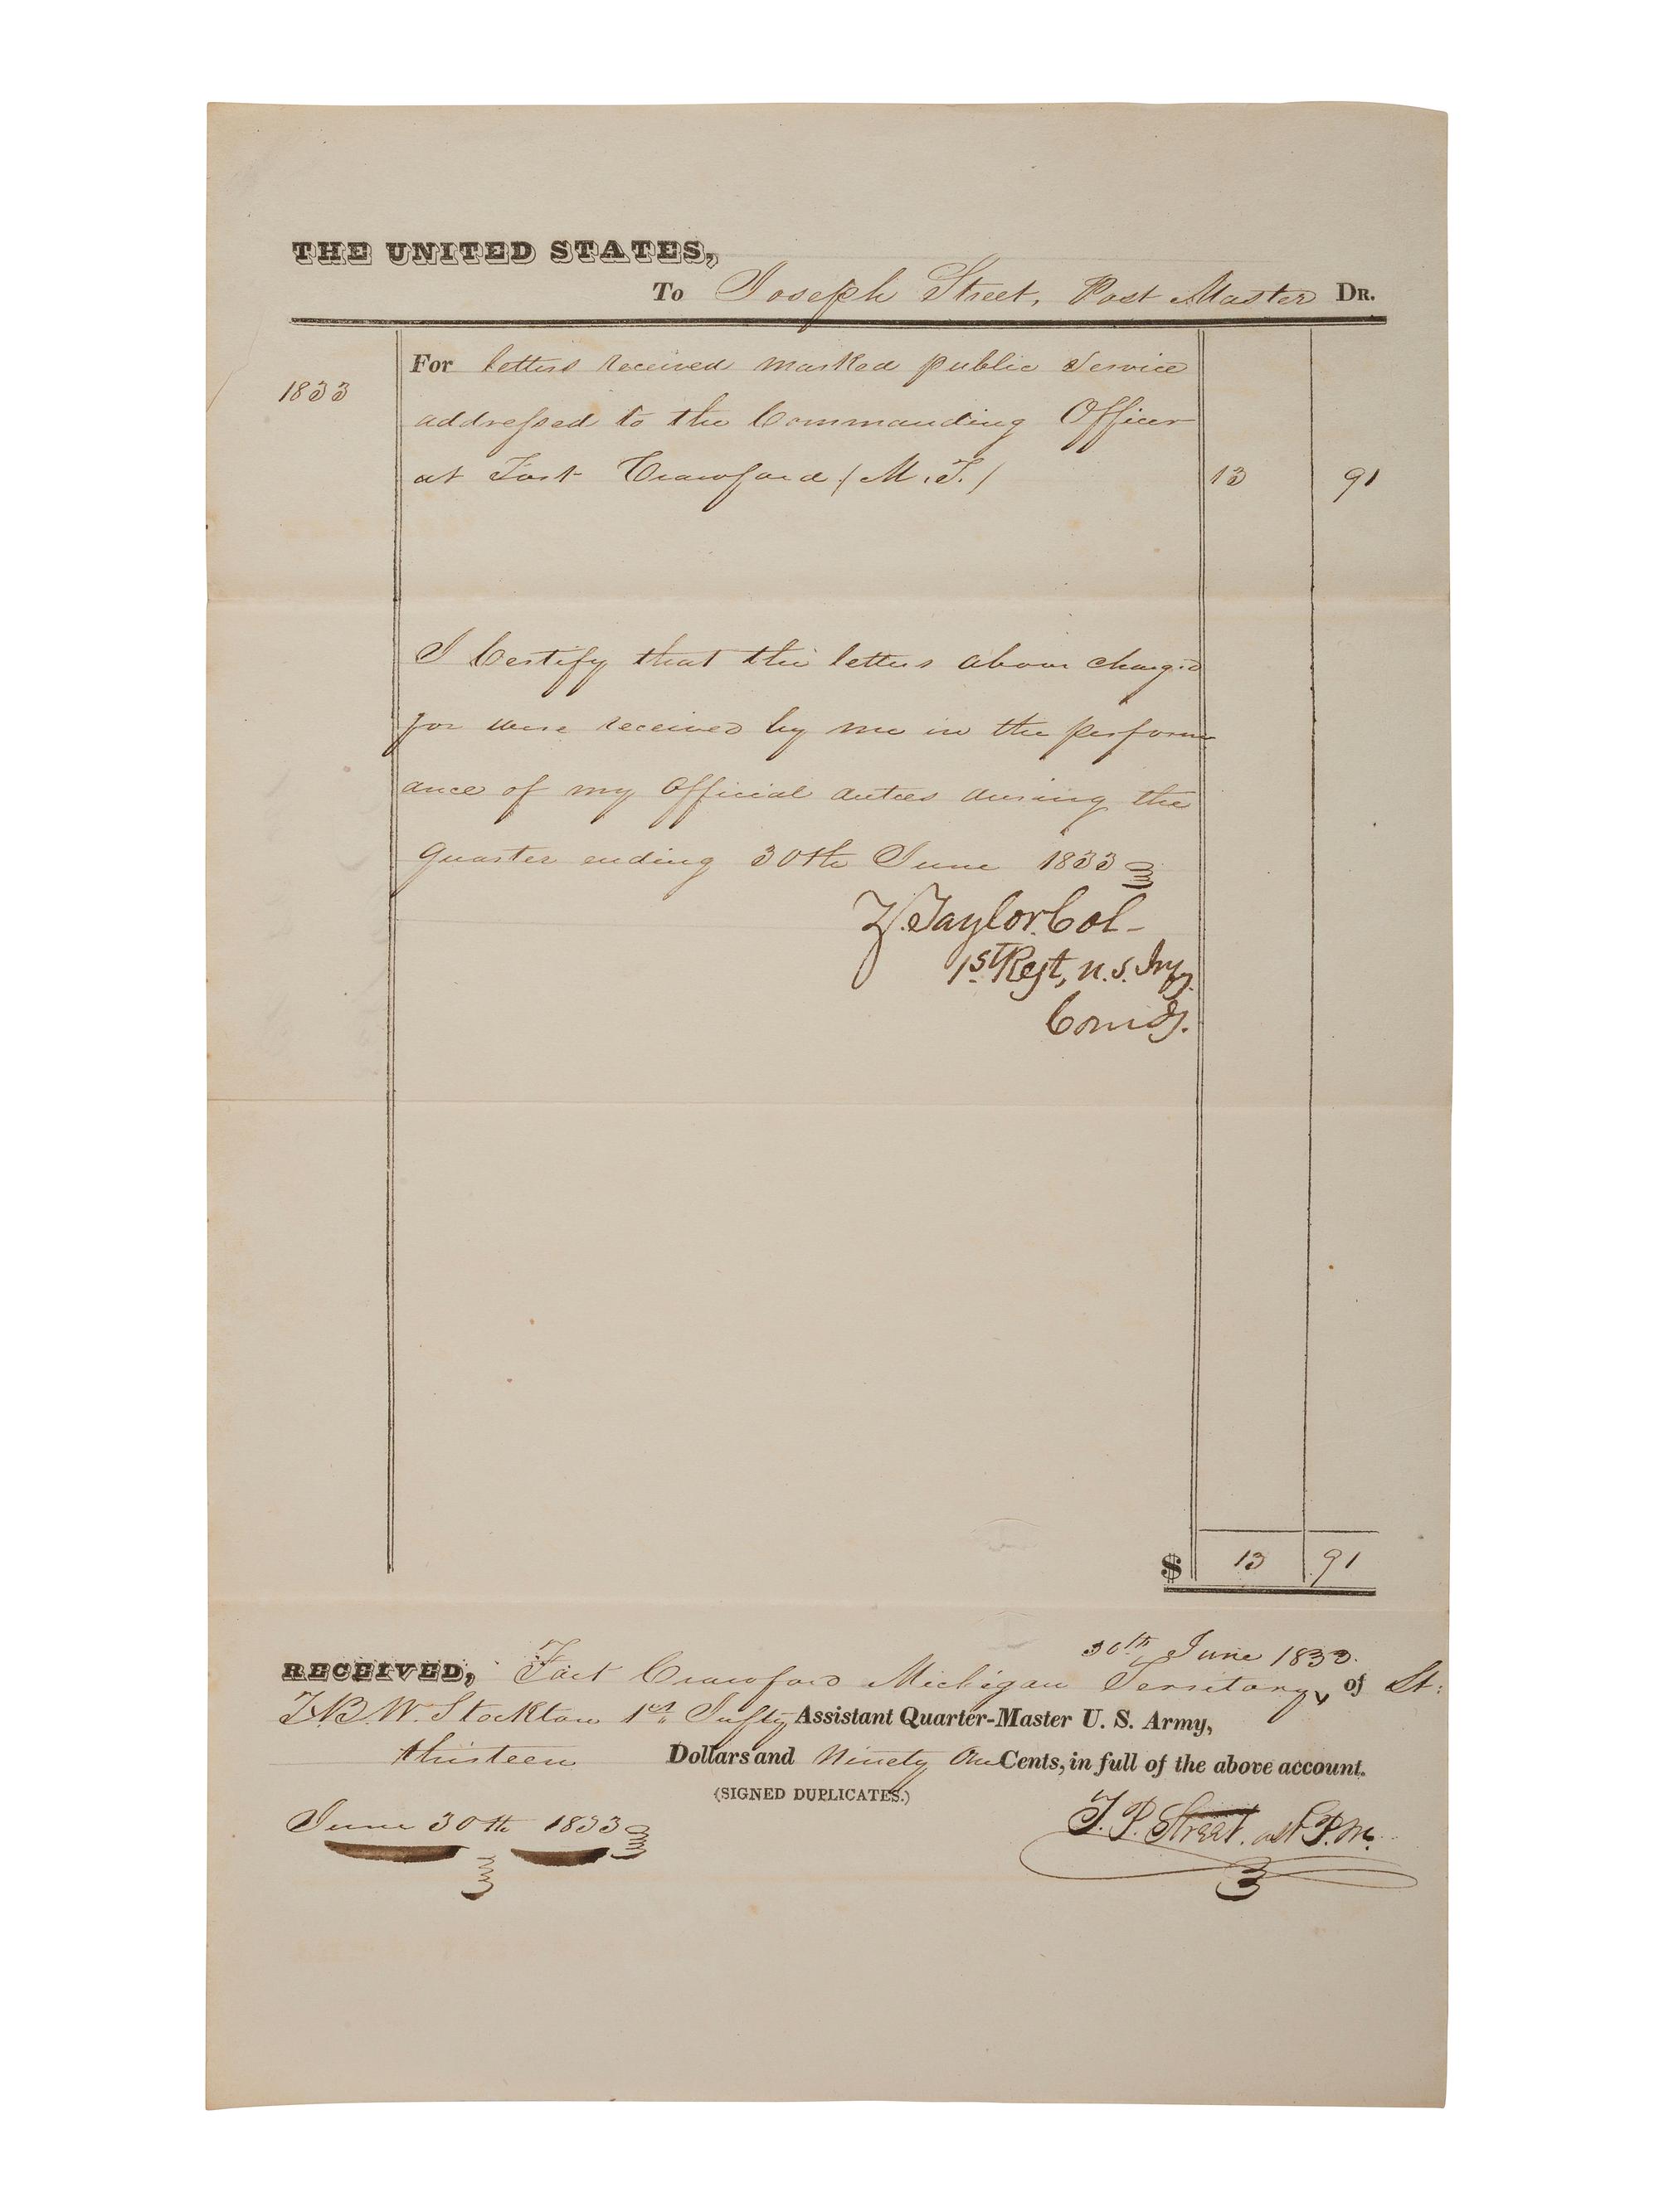 THE UNITED STATES,
To Joseph Street, Post Master DR.
1833
For letters received marked public Service
addressed to the Commanding Officer
at Fort Crawford (M.T.) 13 91
I Certify that the letters above charged
for were received by me in the perform
ance of my Official duties during the
quarter ending 30th June 1833
Z. Taylor. Col -
1st Regt, U.S. Infy.
Comdg.
$ 13 91
30th June 1833.
RECEIVED, Fort Crawford Michigan Territory, of Lt:
T.B.W. Stockton 1st Infty Assistant Quarter-Master U. S. Army,
thirteen Dollars and Ninety One Cents, in full of the above account.
(SIGNED DUPLICATES.)
June 30th 1833
T. P. Street. asst P.M.